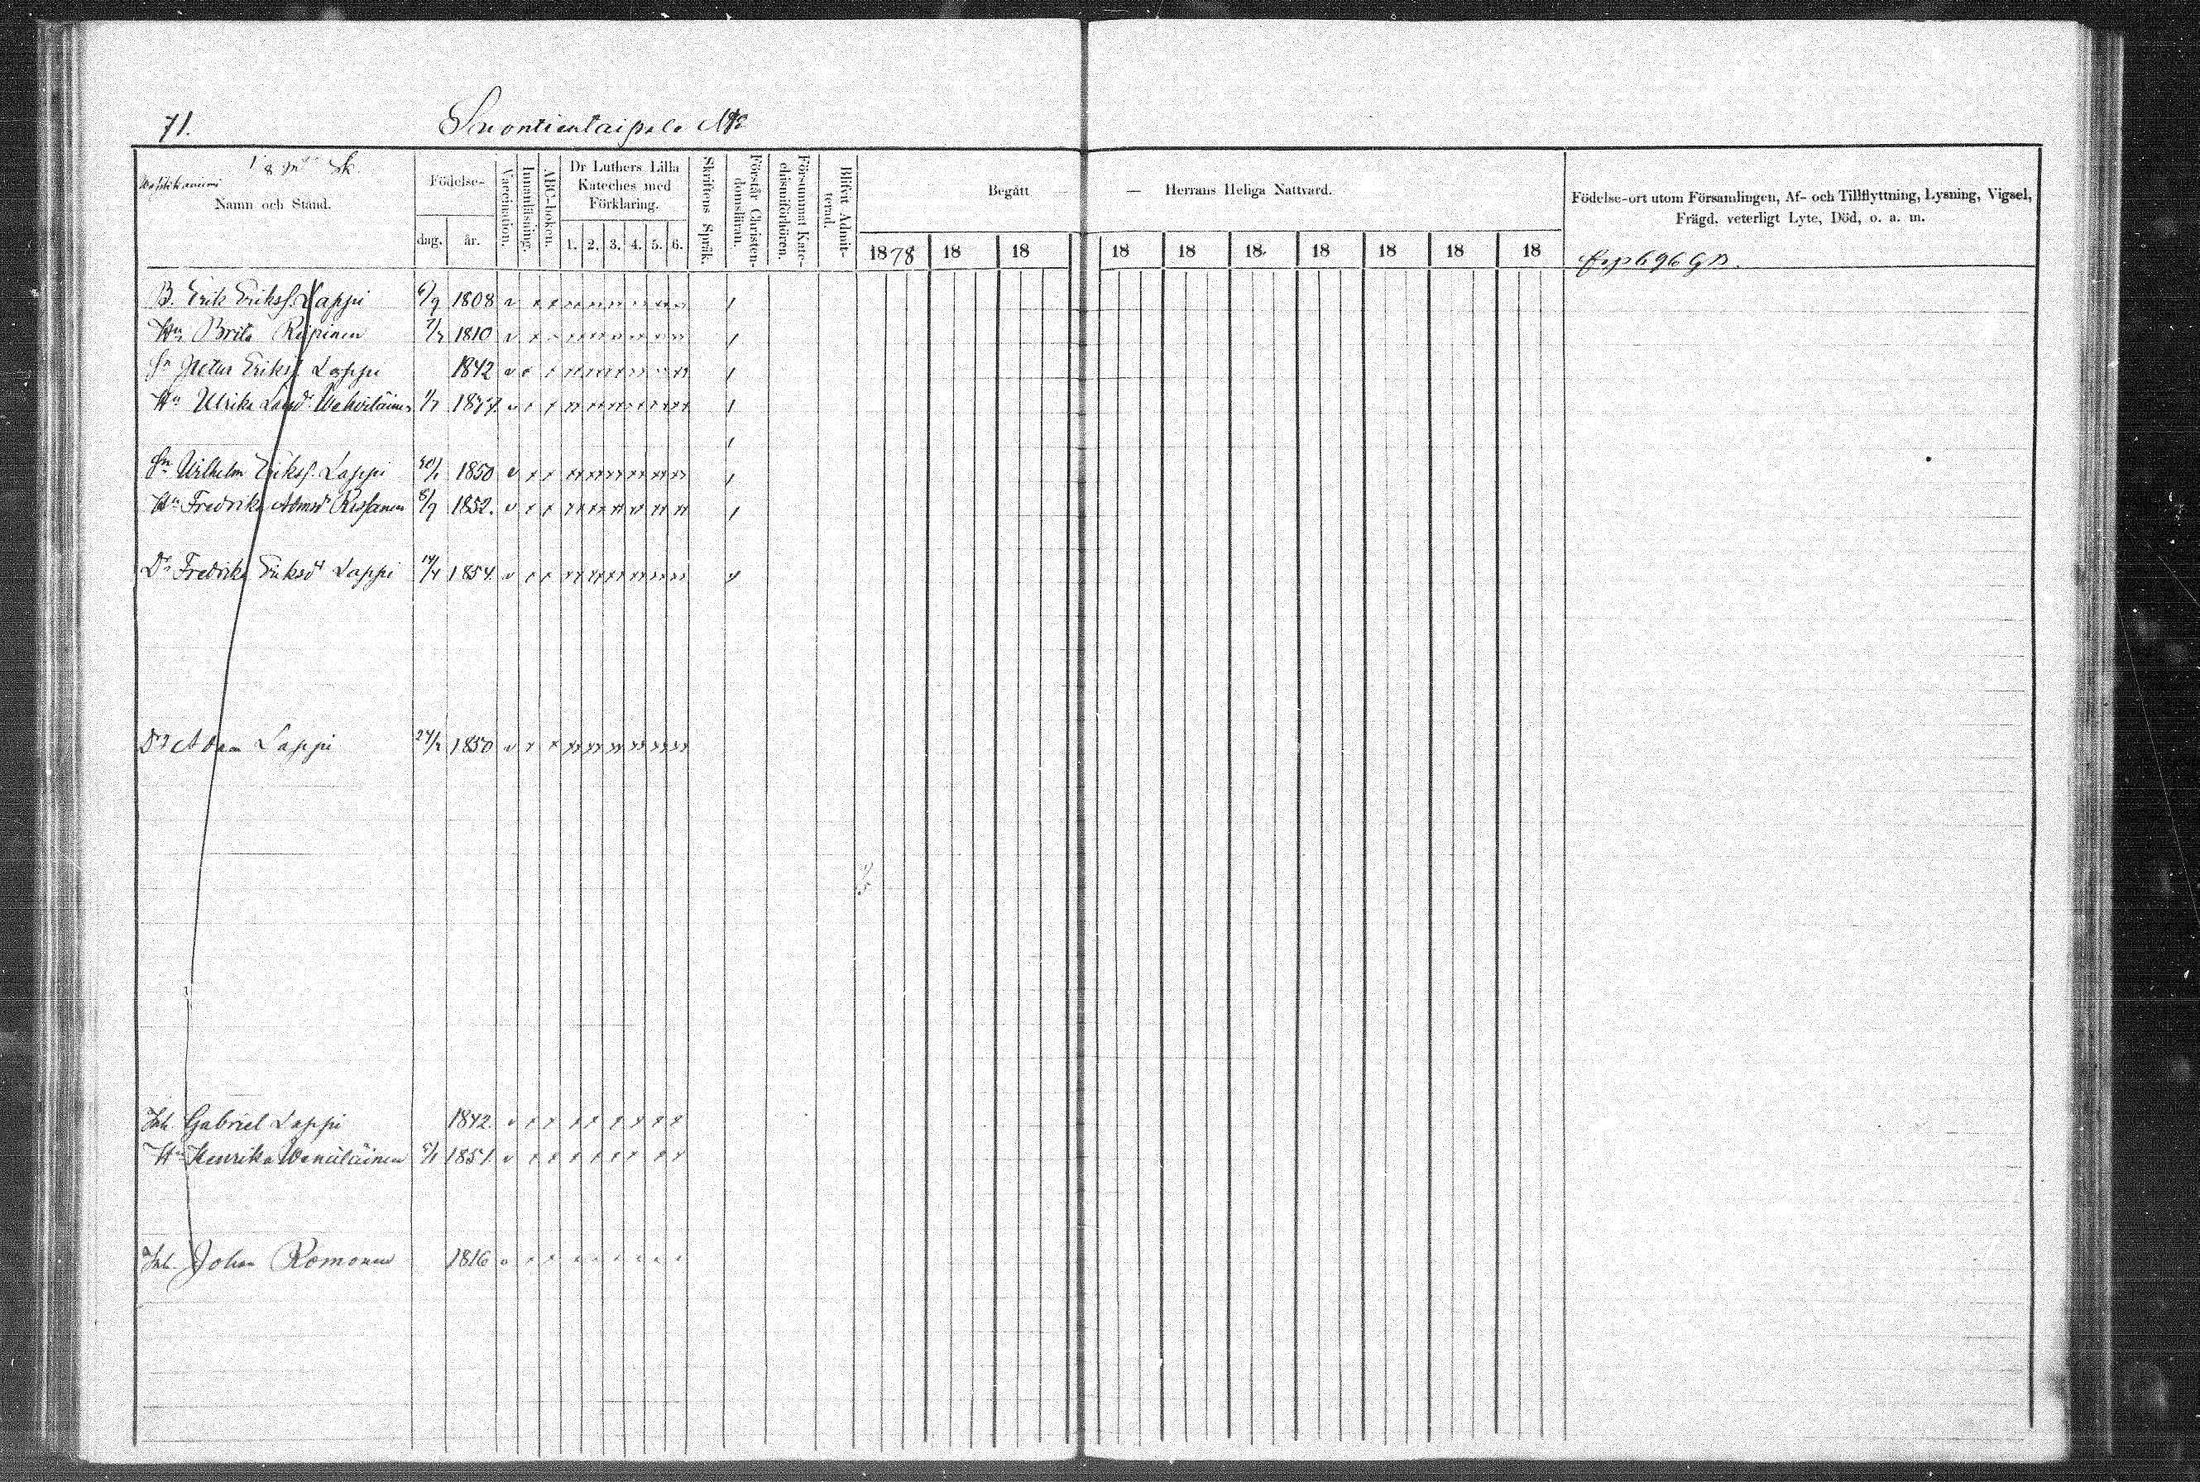 71. Suontientaipale № 2
1/8 mtl Sk.
Namn och Stånd.
Födelse-
dag. år.
Vaccination.
Innanläsning.
ABC-boken.
Dr Luthers Lilla Kateches med Förklaring.
1. 2. 3. 4. 5. 6.
Skriftens Språk.
Förstår Christendomsläran.
Försummat Katechismiförhören.
Blifvit Admitterad.
Begått — — Herrans Heliga Nattvard.
1878 18 18 18 18 18 18 18 18 18
Födelse-ort utom Församlingen, Af- och Tillflyttning, Lysning, Vigsel,
Frägd, veterligt Lyte, Död, o. a. m.
B. Erik Eriksf. Lappi 6/9 1808
Hu Brita Reipinen 1810
Sn Petur Eriksf. Lappi 1842
Hu Ulrika Larsdr
Sn Wilhelm Eriksf. Lappi 1850
Hu Fredrika Admsdr Rissanen 8/9 1852.
Dr Fredrika Eriksdr Lappi 14/4 1854.
Adam Lappi 24/2 1850
Inh. Gabriel Lappi 1842.
Hu Henrika Wenäläinen 1851.
Inh. Johan Romonen 1816